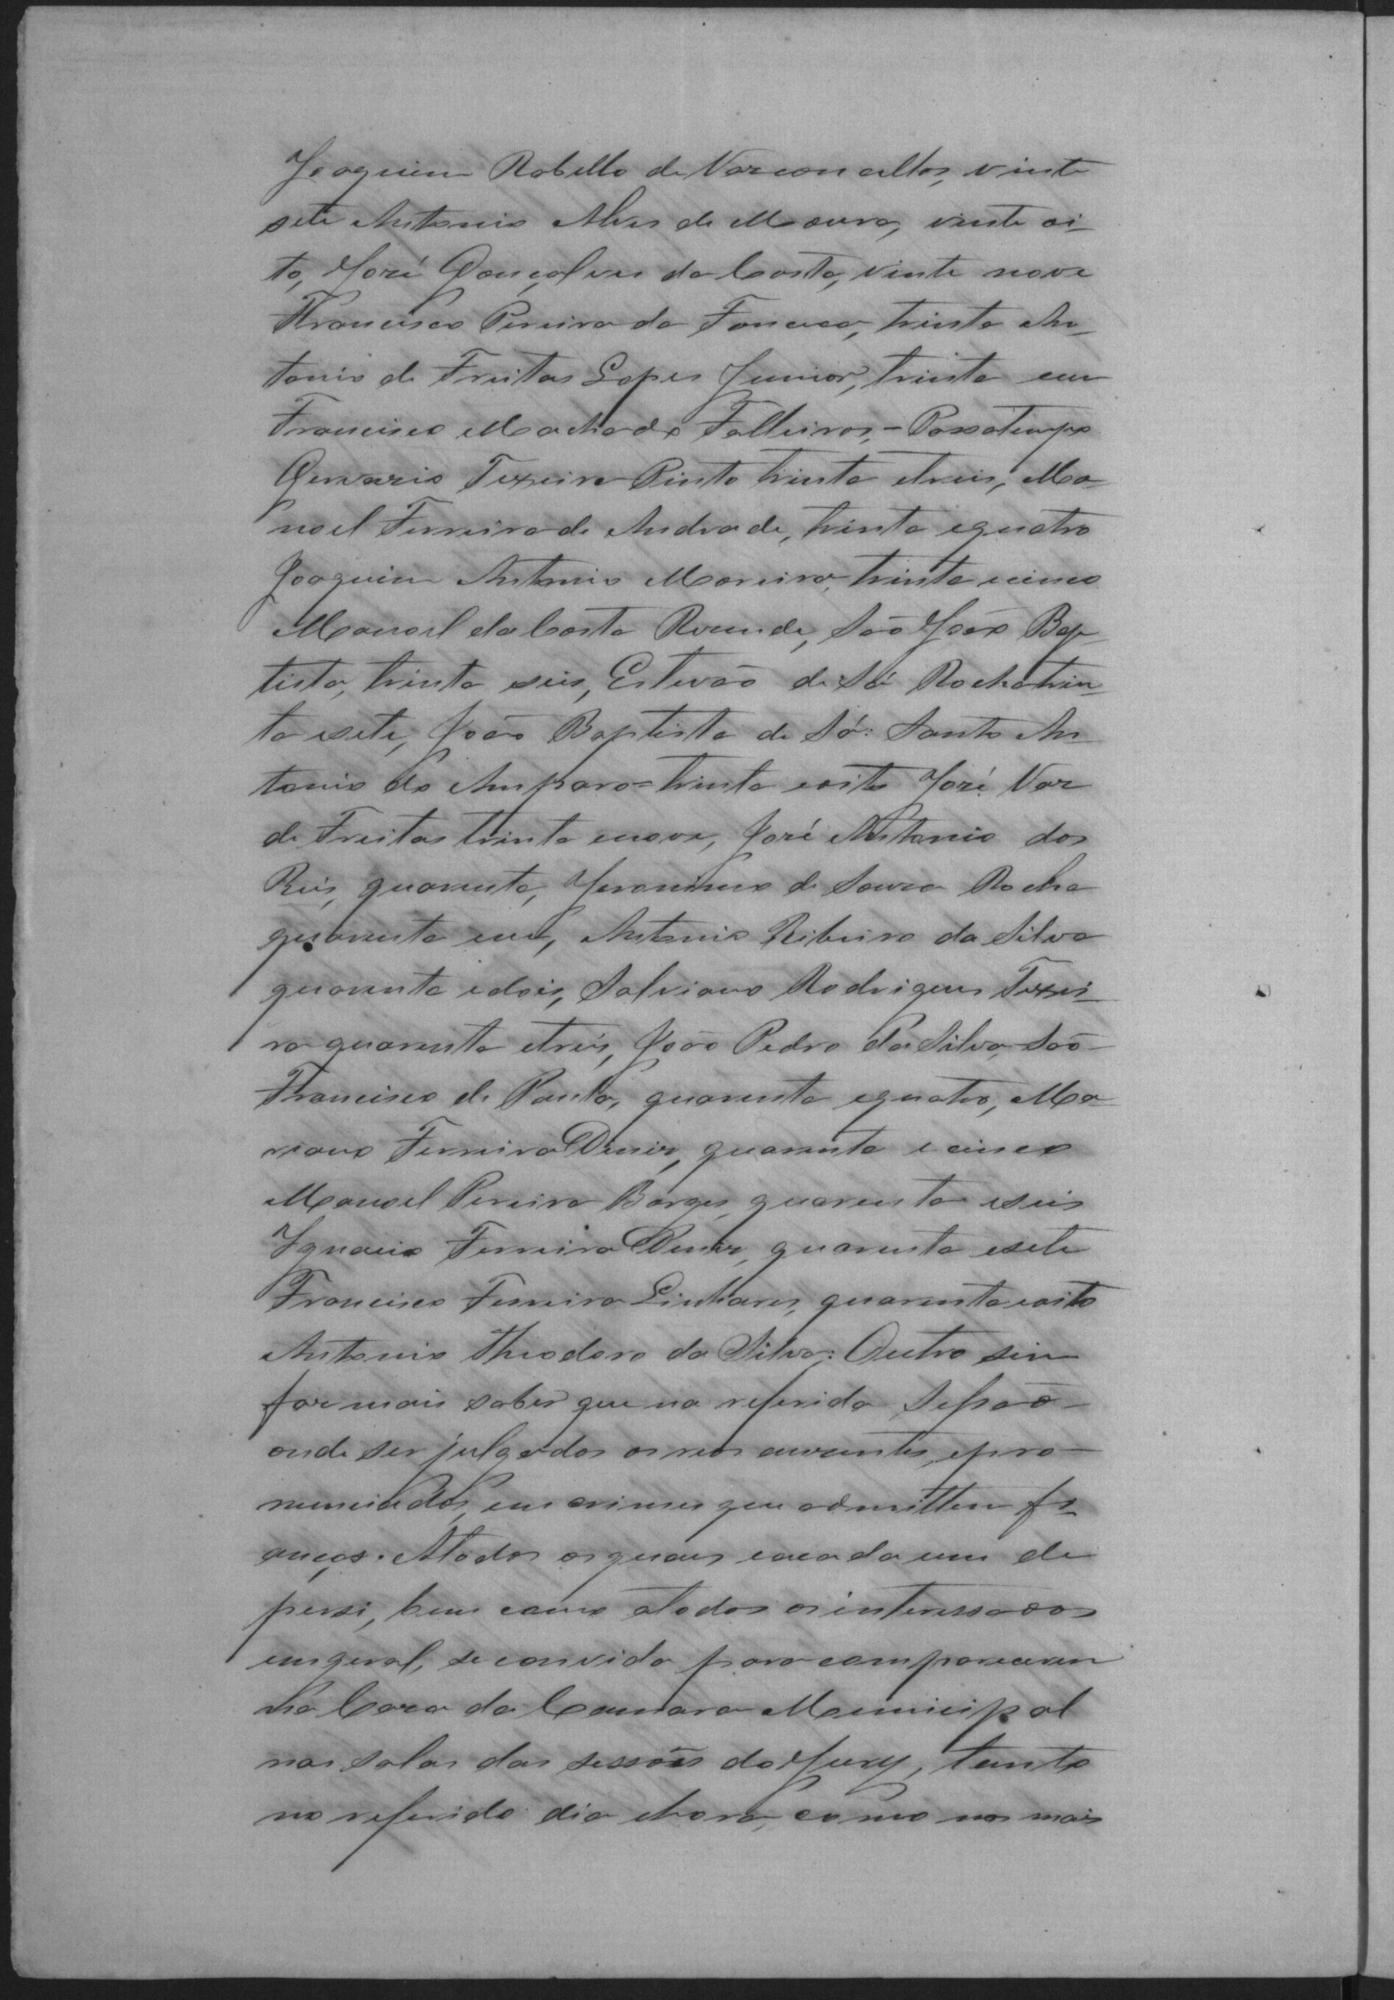 Joaquim Rabello de Vasconcellos, vinte
sete Antonio Alves de Moura, vinte oi-
to, José Gonçalves da Costa, vinte nove
Francisco Pereira da Fonceca, trinta An-
tonio de Freitas Lopes Junior, trinta eum
Francisco Machado Falleiros, - Passatempo
Gervazio Texeira Pinto trinta etreis, Ma-
noel Ferreira de Andrade, trinta equatro
Joaquim Antonio Moreira, trinta ecinco
Manoel da Costa Rezende, São João Bap-
tista, trinta seis, Estevão de Sá Rocha trin-
ta esete, João Baptista de Sá: Santo An-
tonio do Amparo = trinta eoito José Vaz
de Freitas trinta enove, José Antonio dos
Reis, quarenta, Jeronimo de Souza Rocha
quarenta eum, Antonio Ribeiro da Silva
quarenta edois, Salviano Rodrigues Texei-
ra quarenta etreis, João Pedro da Silva São
Francisco de Paula, quarenta equatro, Ma-
riano Ferreira Diniz, quarenta ecinco
Manoel Pereira Borges, quarenta eseis
Ignacio Ferreira Diniz, quarenta esete
Francisco Ferreira Linhares, quarenta eoito
Antonio Theodoro da Silva: Outro sim
faz mais saber que na referida Sessão
ande ser julgados os reos auzentes, epro-
nunciados, em crimes que admittem fi-
ança. Atodos os quaes ecada um de
persi, bem como atodos os interessados
emgeral, se convida para comparecerem
na Caza da Camara Municipal
nas salas das sessões do Jury, tanto
no referido dia ehora, como nos mais